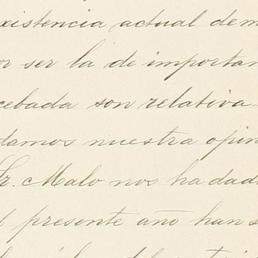 existencia actual dem
or ser la de importan
cebada son relativa
damos nuestra opin
Sr. Malo nos ha dad
l presente año han s